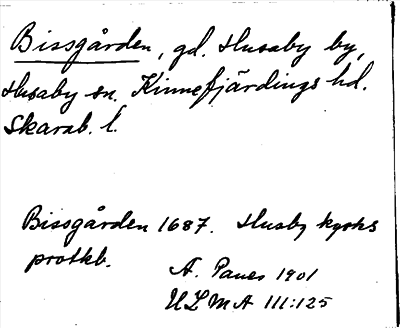 Bissgården, gd. Husaby by,
Husaby sn. Kinnefjärdings hd.
Skarab. l.
Bissgården 1687. Husby kyrks
protkb.
A. Paues 1901
ULMA 111:125